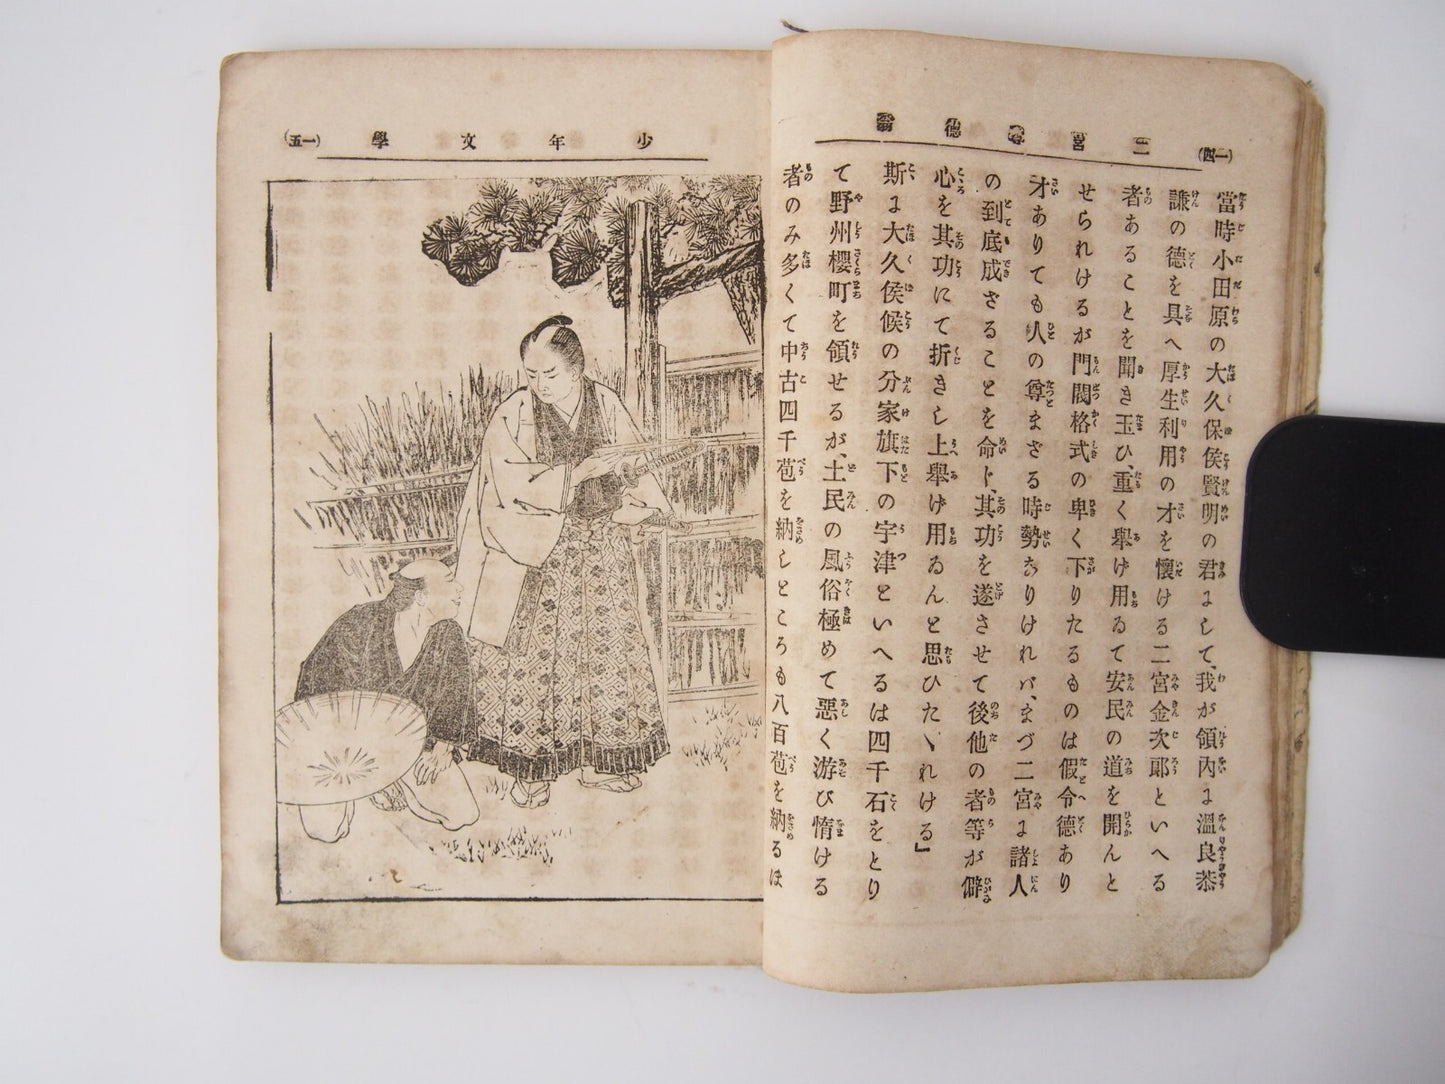 (一四)
二宮尊德翁
當時小田原の大久保侯賢明の君にして、我が領內に溫良恭
謙の德を具へ厚生利用の才を懷ける二宮金次郞といへる
者あることを聞き玉ひ、重く舉げ用ゐて安民の道を開んと
せられけるが門閥格式の卑く下りたるものは假令德あり
才ありても人の尊まざる時勢なりければ、まづ二宮に諸人
の到底成ざることを命じ、其功を遂させて後他の者等が僻
心を其功にて折きし上舉げ用ゐんと思ひたゝれける』
斯に大久侯候の分家旗下の宇津といへるは四千石をとり
て野州櫻町を領せるが、土民の風俗極めて惡く游び惰ける
者のみ多くて中古四千苞を納しところも八百苞を納るほ
少年文學
(一五)